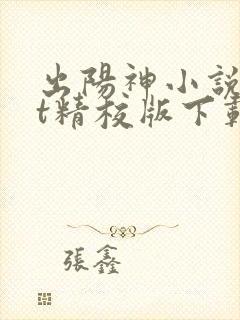 出陽神小說
t精校版下載
張鑫